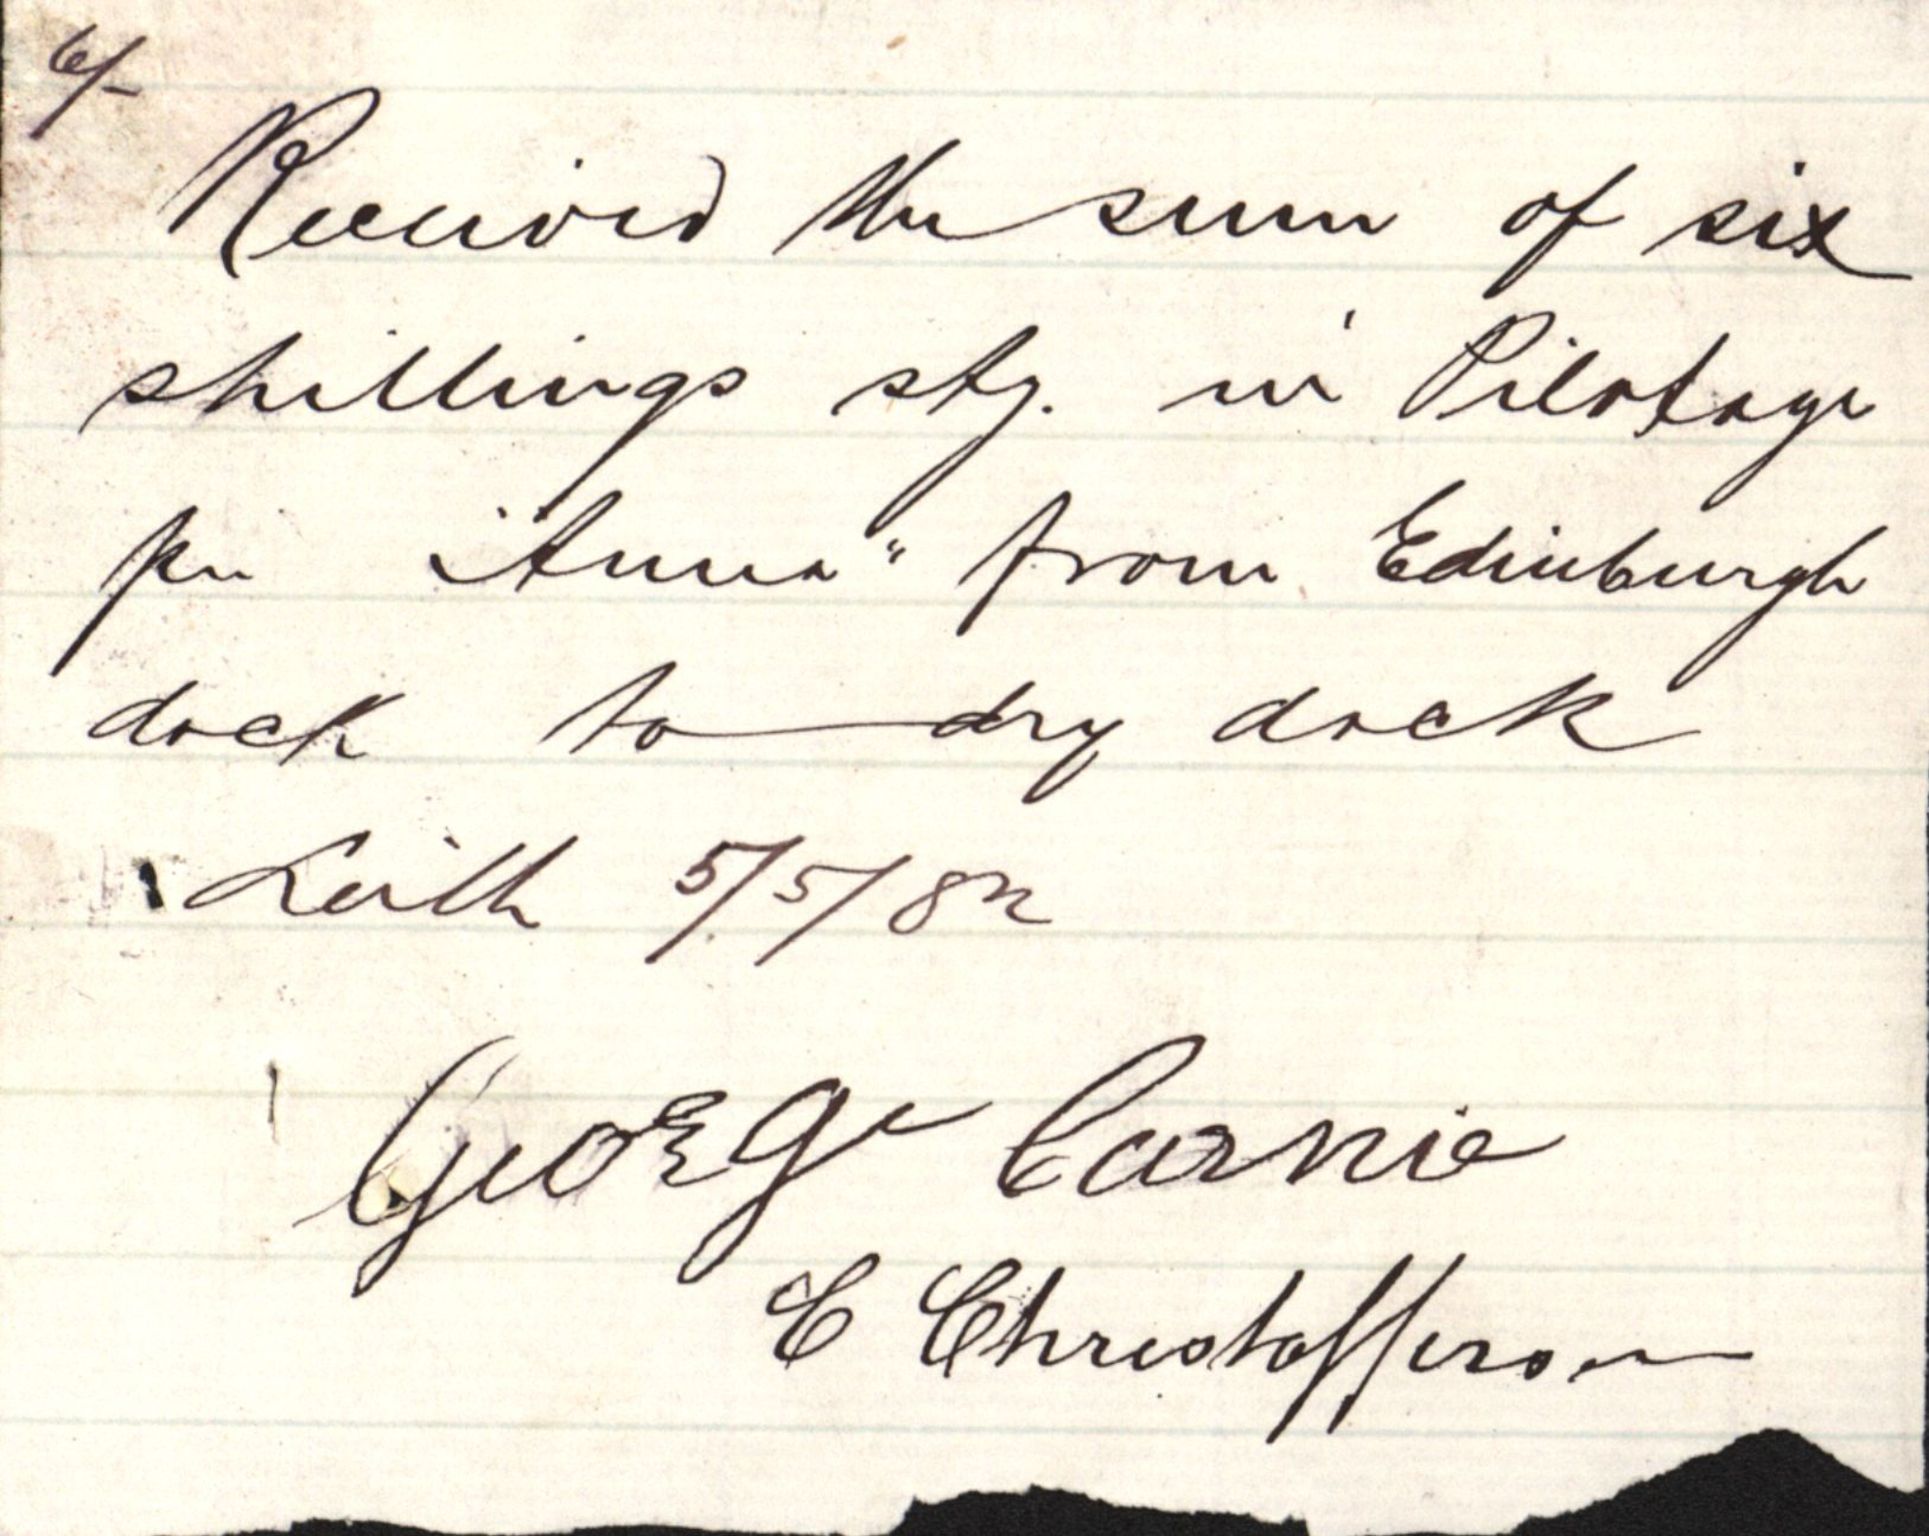 6/-
Received the sum of six
shillings stg. in Pilotage
per "Anna" from Edinburgh
dock to dry dock
Leith 5/5/82
George Carnie
C Christofferson